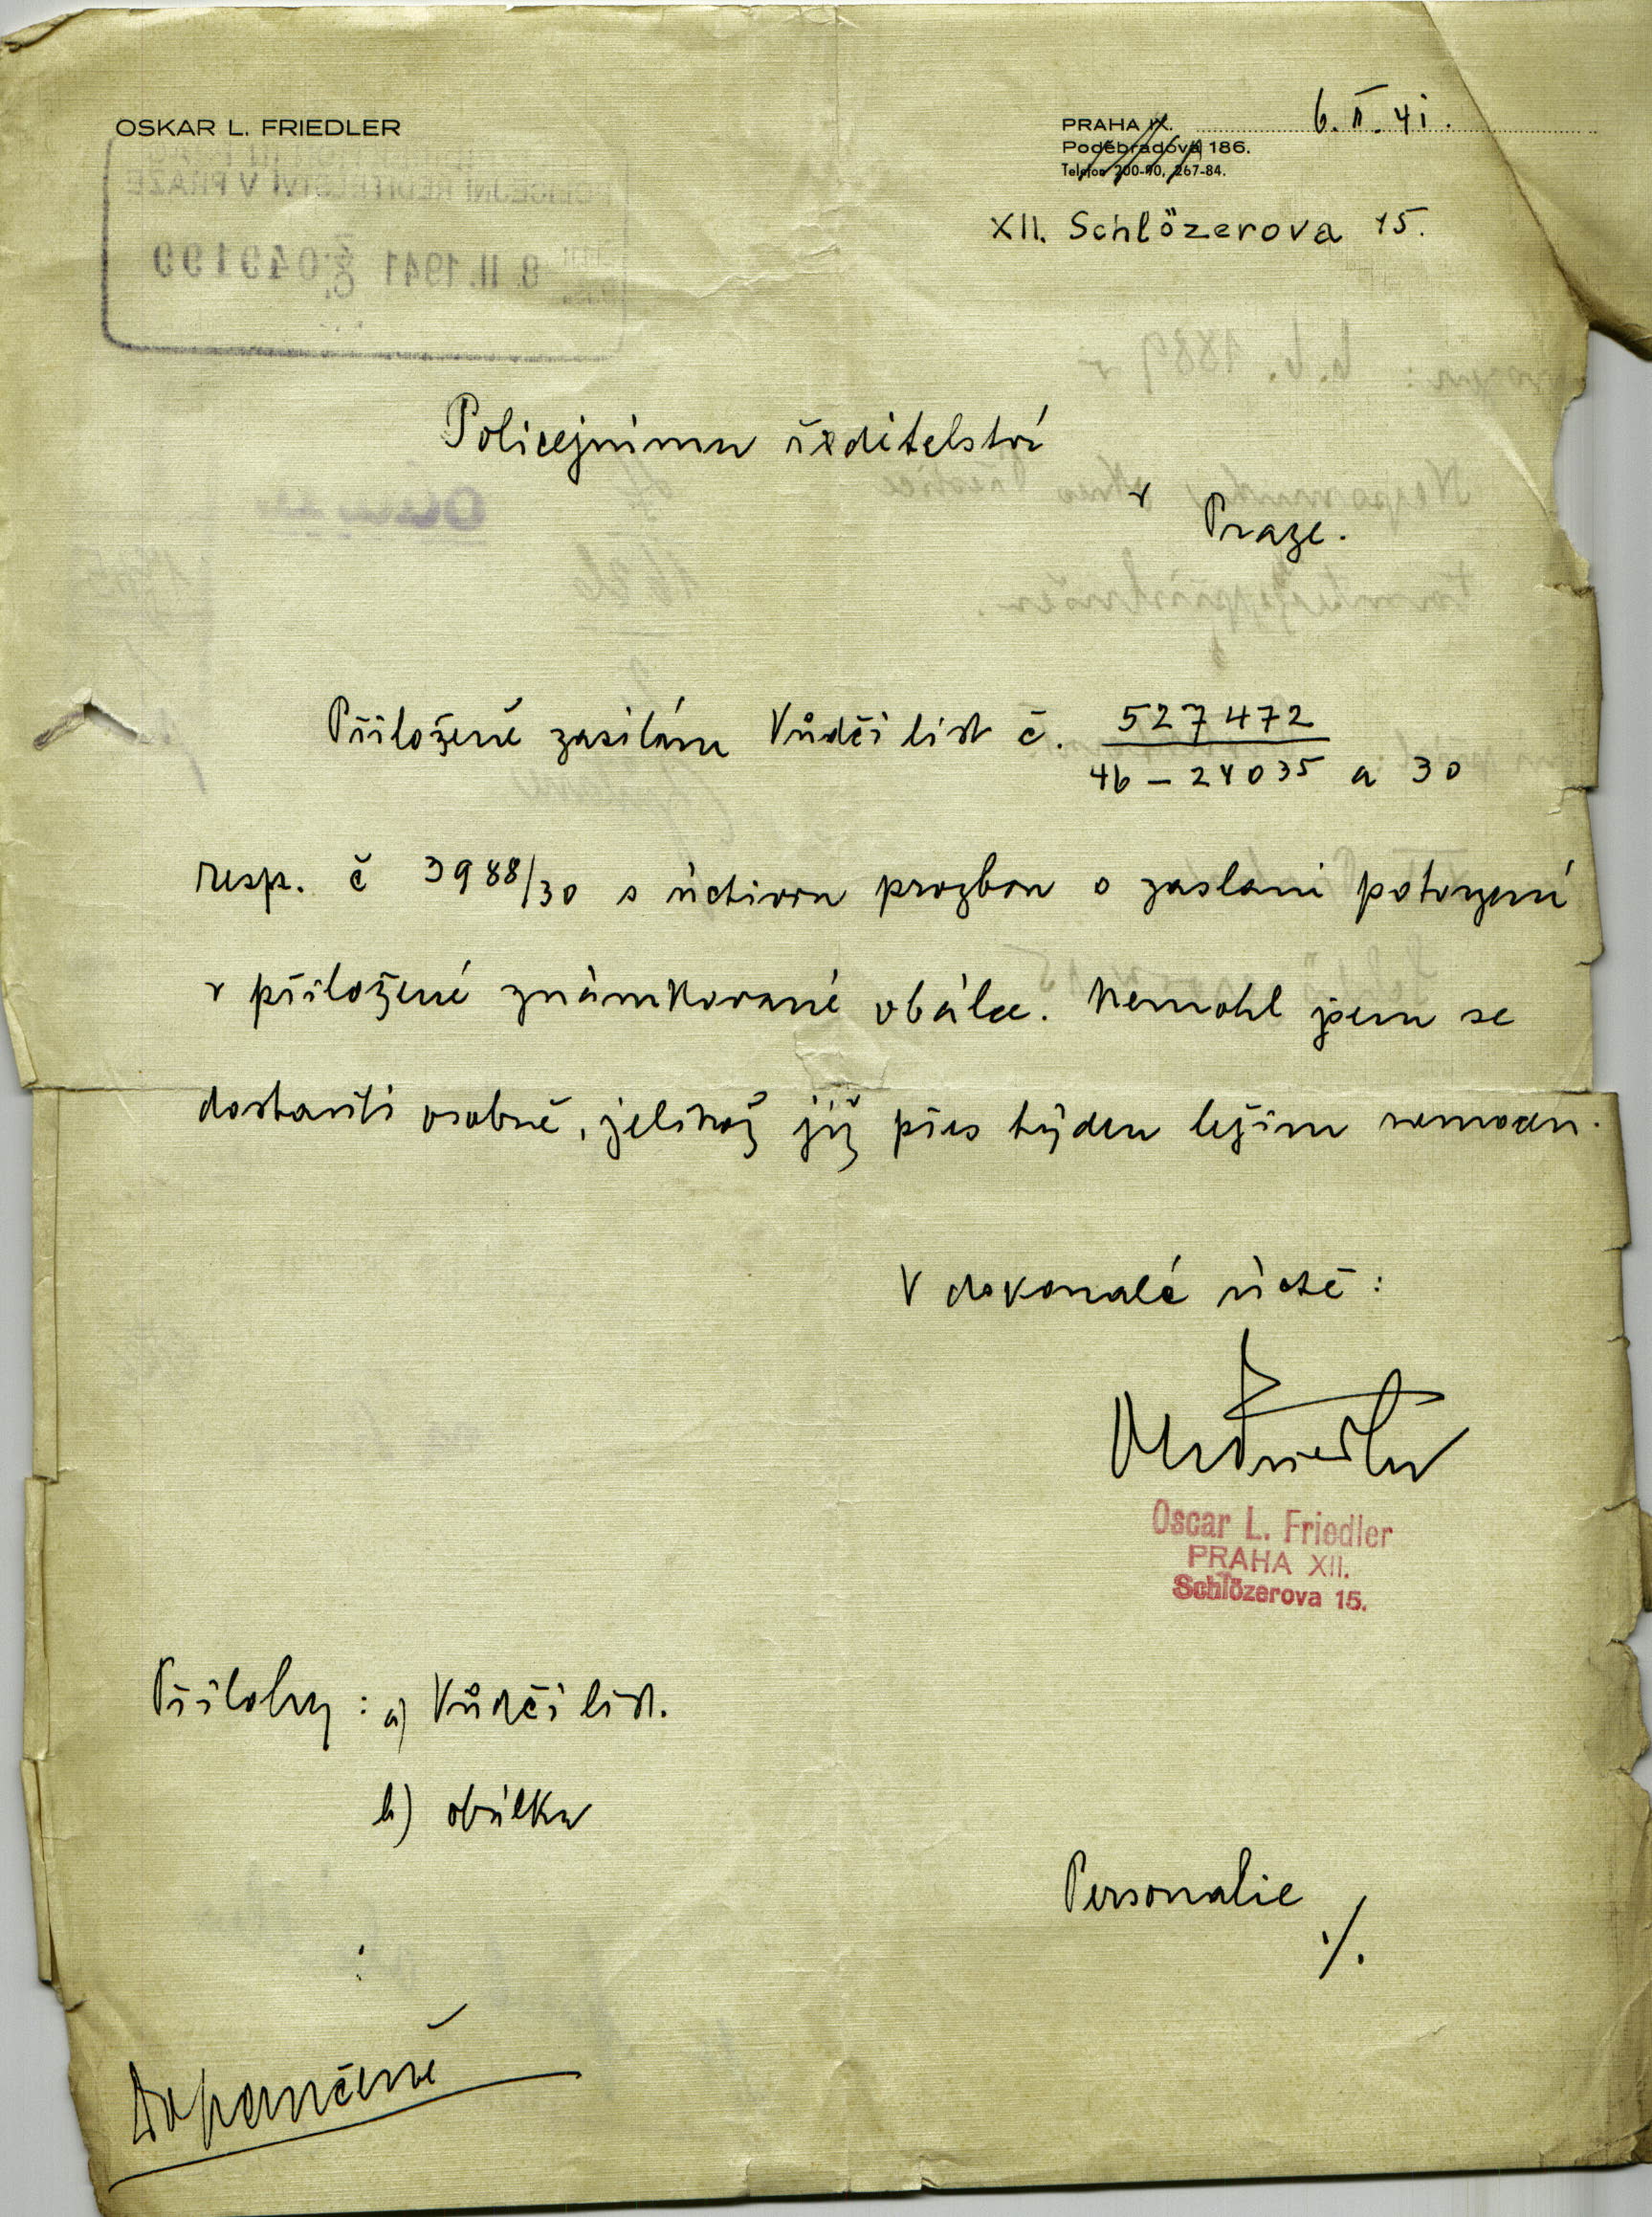 OSKAR L. FRIEDLER
PRAHA IX. 6. II. 41.
Poděbradova 186.
Telefon 200-90, 267-84.
XII. Schlözerova 15.
Policejnímu ředitelství
v Praze.
Přiloženě zasílám Vůdčí list č. 527472
46 - 24035 a 30
resp. č 3988/30 s úctivou prozbou o zaslani potvrzení
v přiložené známkované obálce. Nemohl jsem se
dostaviti osobně, jelikož již přes týden ležím nemocen.
V dokonalé úctě:
Oscar L. Friedler
PRAHA XII.
Schlözerova 15.
Přílohy: a) Vůdčí list.
b) obálka
Personalie
./.
Doporučeně